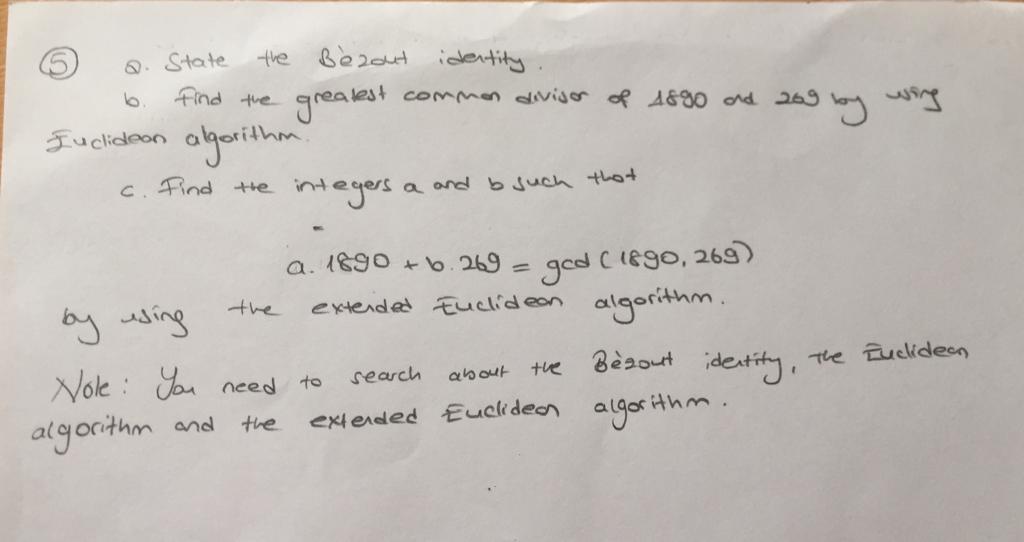 ⑤ a. State the Bèzout identity.
b. Find the greatest common divisor of 1890 and 269 by using
Euclidean algorithm.
c. Find the integers a and b such that
a. 1890 + b. 269 = gcd (1890, 269)
by using the extended Euclidean algorithm.
Note: You need to search about the Bèzout identity, the Euclidean
algorithm and the extended Euclidean algorithm.